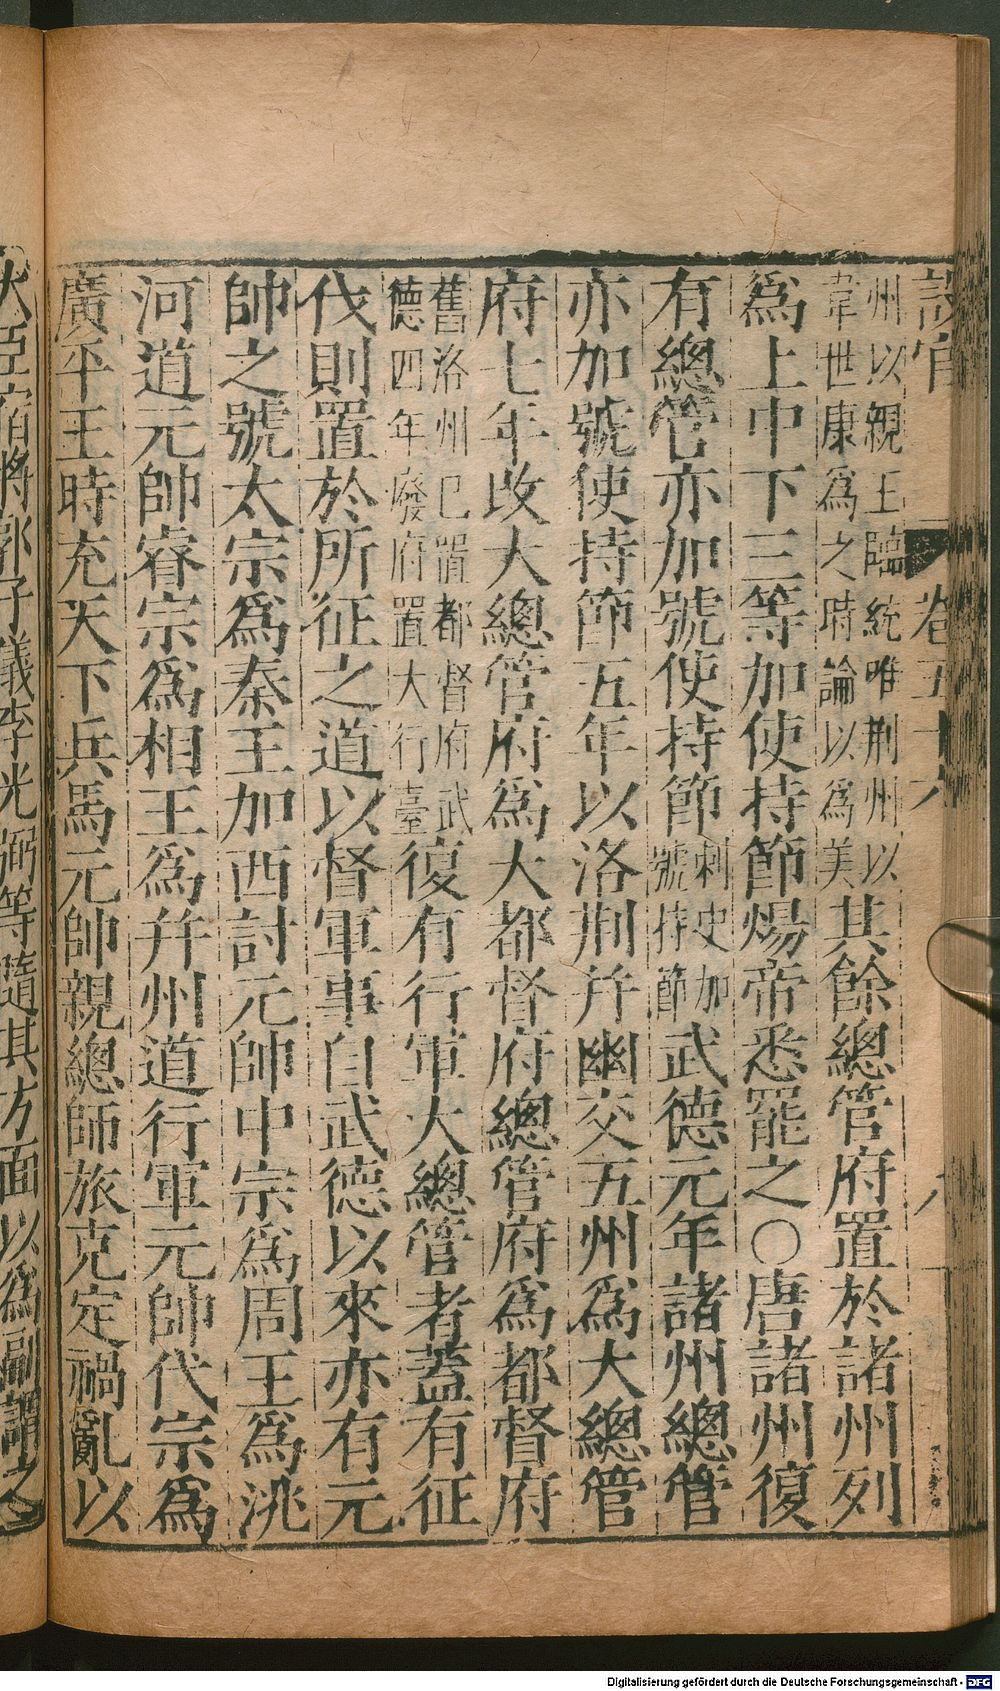 設官 卷五十六 八
州以親王臨統唯荆州以
韋世康爲之時論以爲美
其餘總管府置於諸州列
爲上中下三等加使持節煬帝悉罷之○唐諸州復
有總管亦加號使持節
刺史加
號持節
武德元年諸州總管
亦加號使持節五年以洛荆并幽交五州爲大總管
府七年改大總管府爲大都督府總管府爲都督府
舊洛州已置都督府武
德四年廢府置大行臺
復有行軍大總管者蓋有征
伐則置於所征之道以督軍事自武德以來亦有元
帥之號太宗爲秦王加西討元帥中宗爲周王爲洮
河道元帥睿宗爲相王爲并州道行軍元帥代宗爲
廣平王時充天下兵馬元帥親總師旅克定禍亂以
大臣宿將郭子儀李光弼等隨其方面以爲副謂之
Digitalisierung gefördert durch die Deutsche Forschungsgemeinschaft - DFG